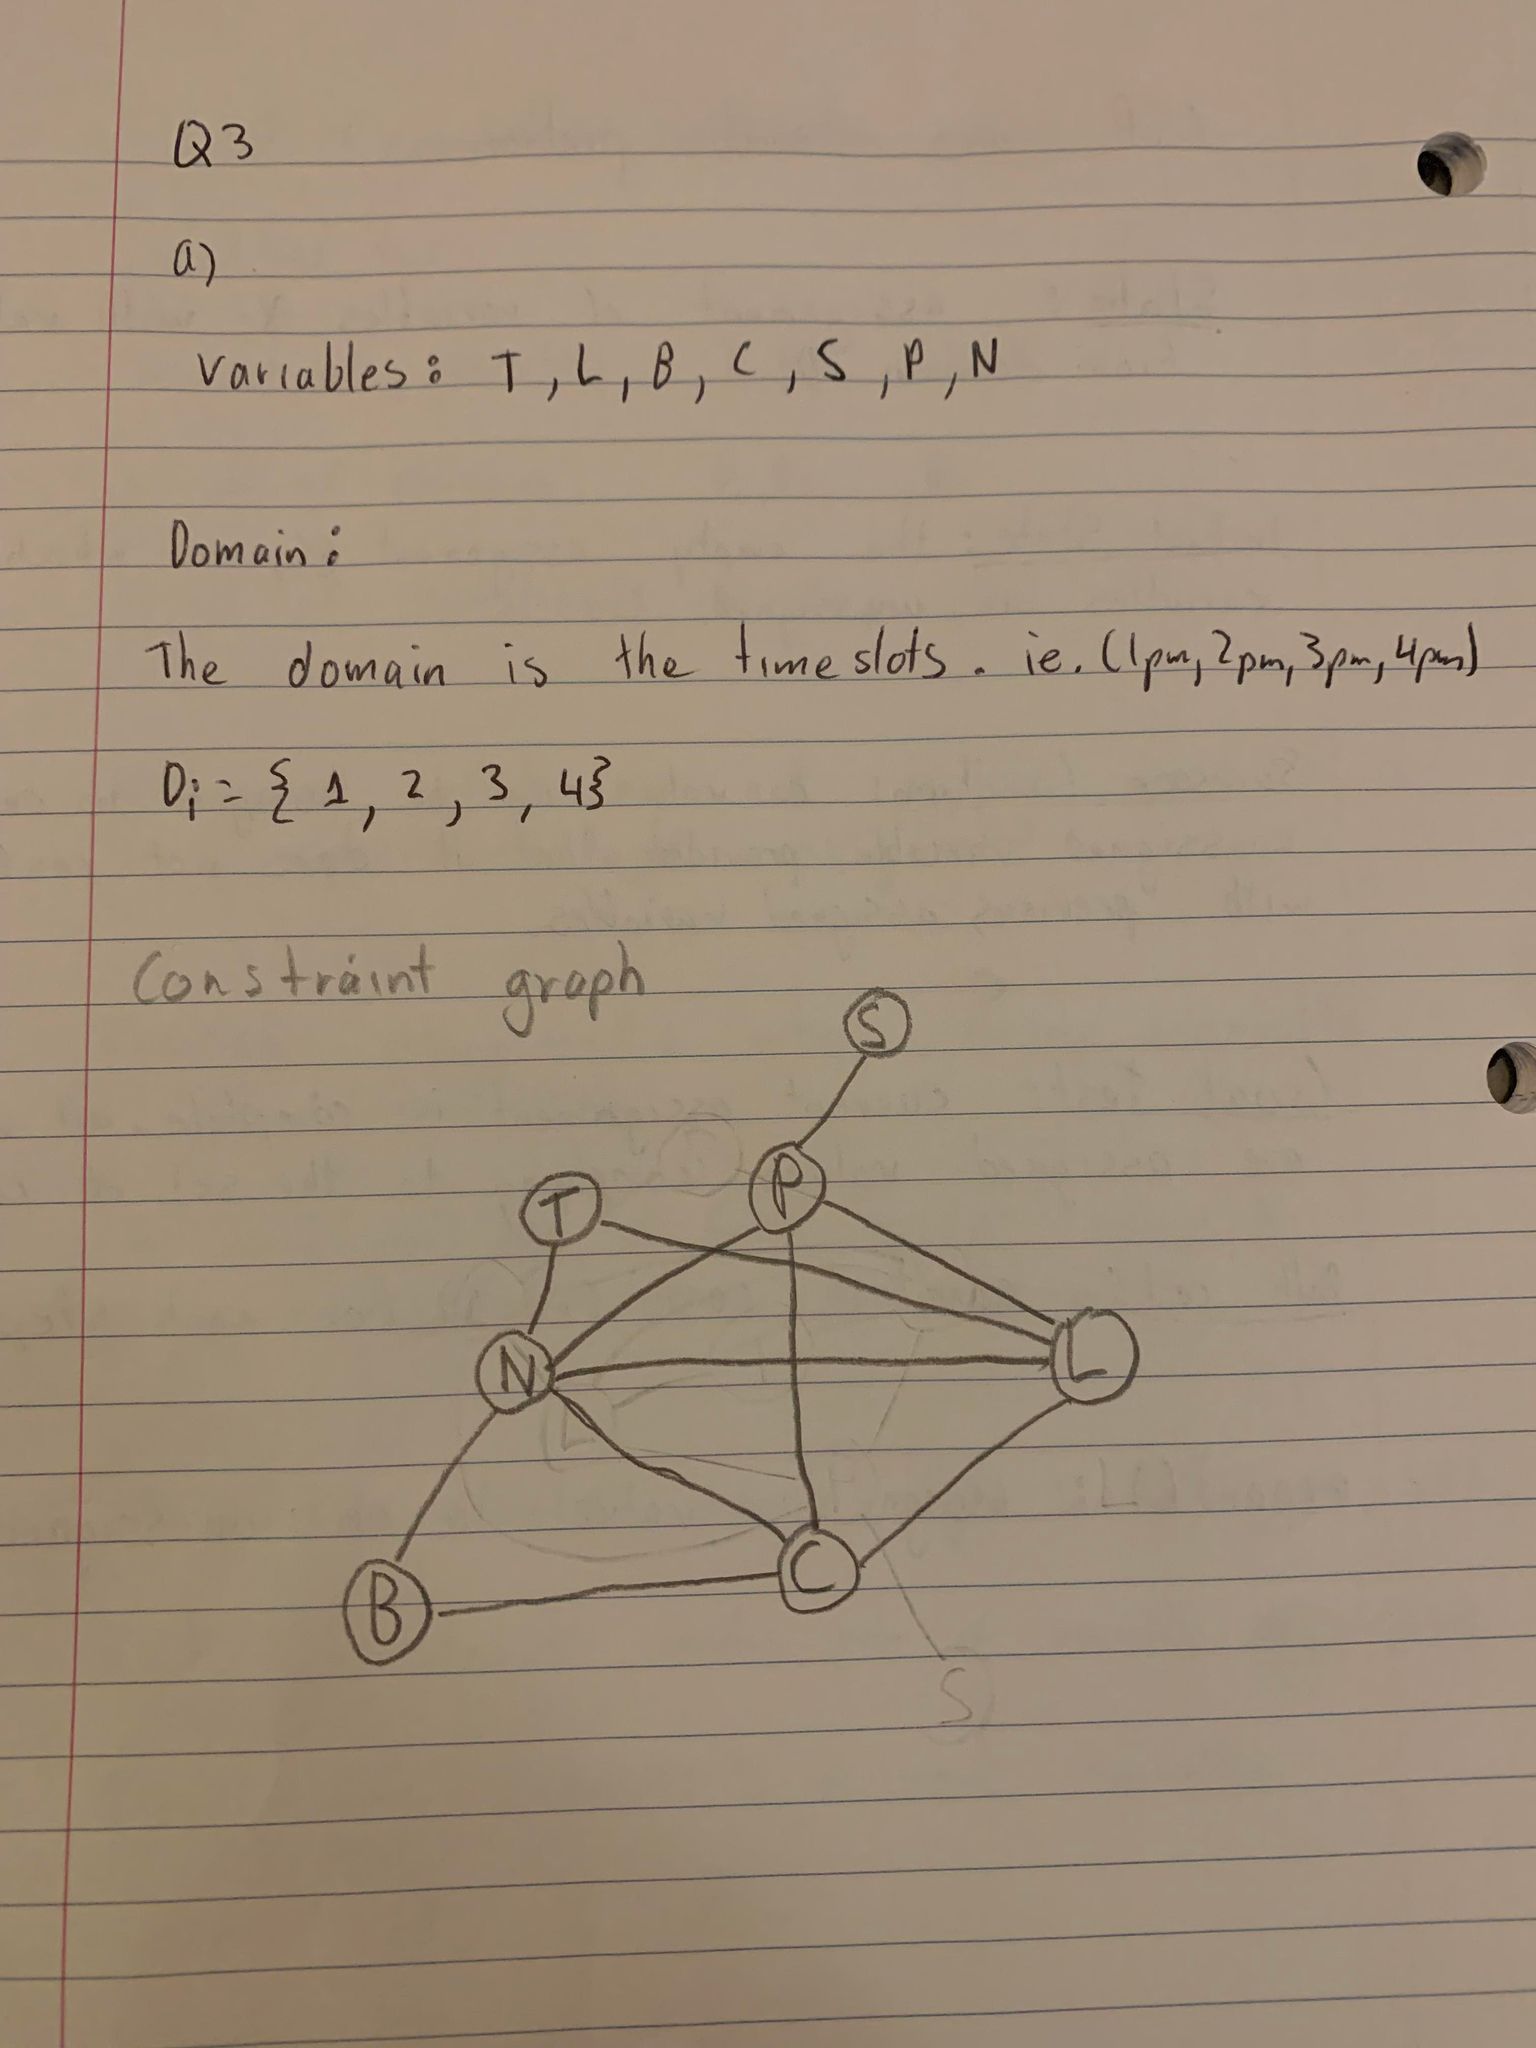 Q3
a)
Variables: T, L, B, C, S, P, N
Domain:
The domain is the timeslots. ie. (1pm, 2pm, 3pm, 4pm)
Di = { 1, 2, 3, 4}
Constraint graph
S
P
T
N
L
C
B
S